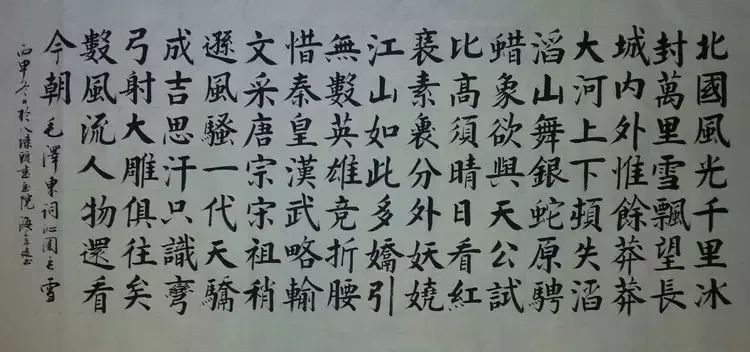 北國風光千里冰
封萬里雪飄望長
城內外惟餘莽莽
大河上下頓失滔
滔山舞銀蛇原騁
蜡象欲與天公試
比高須晴日看紅
素裹分外妖嬈
江山如此多嬌引
無數英雄竞折腰
惜秦皇漢武略輸
文采唐宗宋祖稍
遜風騷一代天驕
成吉思汗只識彎
弓射大雕俱往矣
數風流人物還看
今朝 毛澤東詞沁園春雪
丙申冬日於八頭書畫院 海書